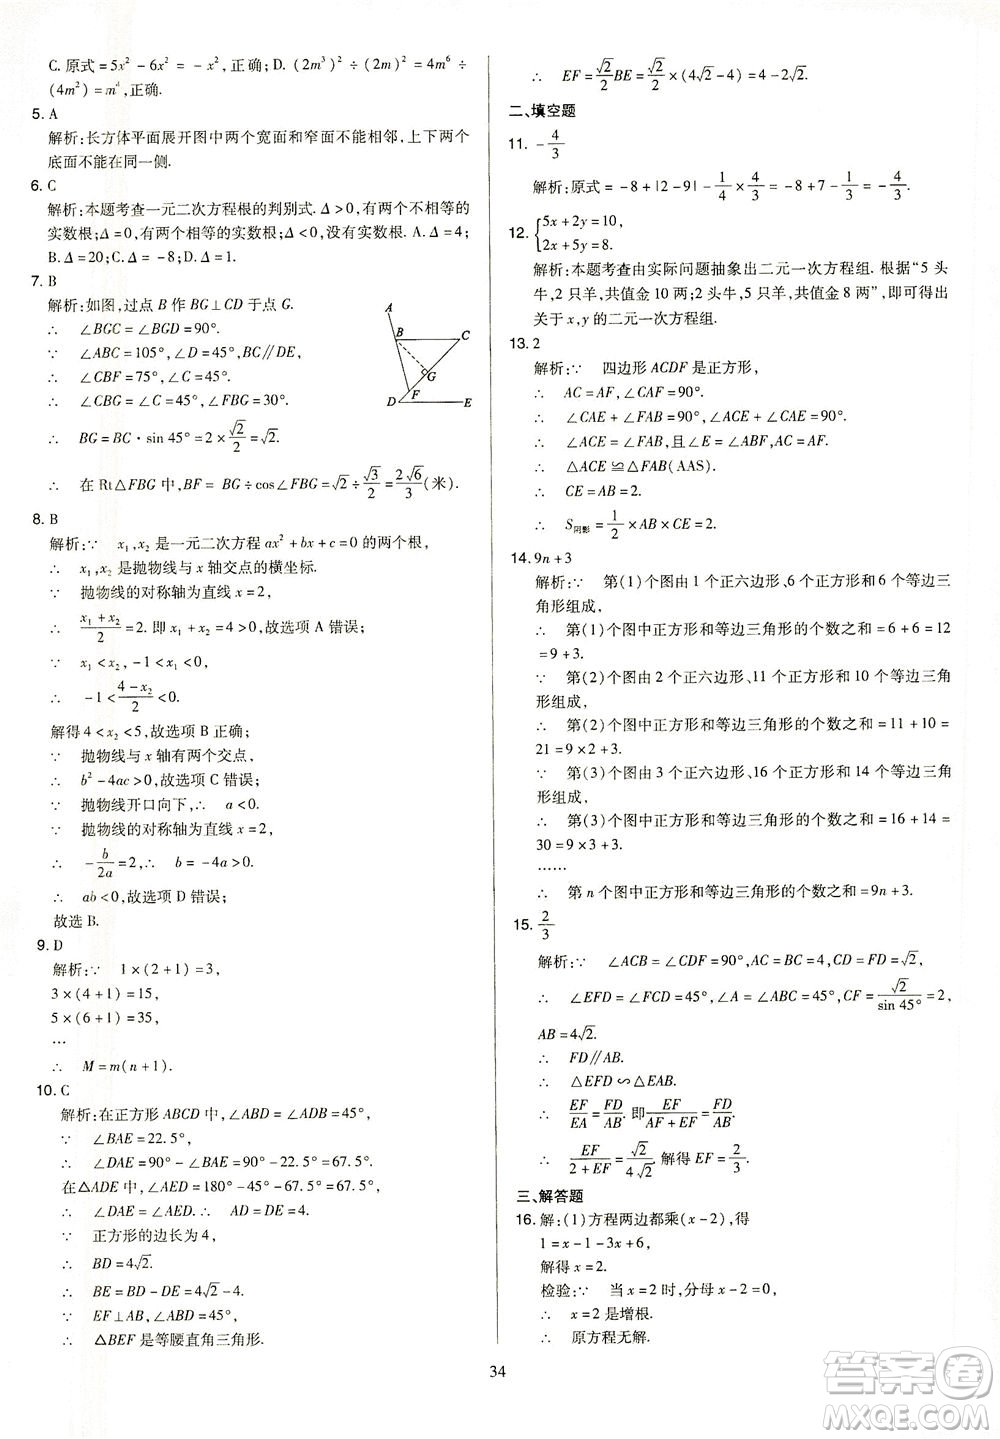 C. 原式=5x²-6x²=-x²,正确;D.(2m³)²÷(2m)²=4m⁶÷
(4m²)=m⁴,正确.
5. A
解析:长方体平面展开图中两个宽面和窄面不能相邻,上下两个
底面不能在同一侧.
6. C
解析:本题考查一元二次方程根的判别式.Δ>0,有两个不相等的
实数根;Δ=0,有两个相等的实数根;Δ<0,没有实数根.A.Δ=4;
B.Δ=20;C.Δ=-8;D.Δ=1.
7. B
解析:如图,过点B作BG⊥CD于点G.
∴ ∠BGC=∠BGD=90°.
∵ ∠ABC=105°,∠D=45°,BC∥DE,
∴ ∠CBF=75°,∠C=45°.
∴ ∠CBG=∠C=45°,∠FBG=30°.
∴ BG=BC·sin 45°=2×√2/2=√2.
∴ 在Rt△FBG中,BF= BG÷cos∠FBG=√2÷√3/2=2√6/3(米).
A
B
C
G
F
D
E
8. B
解析:∵ x₁,x₂是一元二次方程ax²+bx+c=0的两个根,
∴ x₁,x₂是抛物线与x轴交点的横坐标.
∵ 抛物线的对称轴为直线x=2,
∴ (x₁+x₂)/2=2.即x₁+x₂=4>0,故选项A错误;
∵ x₁<x₂,-1<x₁<0,
∴ -1<(4-x₂)/2<0.
解得4<x₂<5,故选项B正确;
∵ 抛物线与x轴有两个交点,
∴ b²-4ac>0,故选项C错误;
∵ 抛物线开口向下,∴ a<0.
∵ 抛物线的对称轴为直线x=2,
∴ -b/2a=2,∴ b=-4a>0.
∴ ab<0,故选项D错误;
故选B.
9. D
解析:∵ 1×(2+1)=3,
3×(4+1)=15,
5×(6+1)=35,
…
∴ M=m(n+1).
10. C
解析:在正方形ABCD中,∠ABD=∠ADB=45°,
∵ ∠BAE=22.5°,
∴ ∠DAE=90°-∠BAE=90°-22.5°=67.5°.
在△ADE中,∠AED=180°-45°-67.5°=67.5°,
∴ ∠DAE=∠AED.∴ AD=DE=4.
∵ 正方形的边长为4,
∴ BD=4√2.
∴ BE=BD-DE=4√2-4.
∵ EF⊥AB,∠ABD=45°,
∴ △BEF是等腰直角三角形.
∴ EF=√2/2BE=√2/2×(4√2-4)=4-2√2.
二、填空题
11. -4/3
解析:原式=-8+|2-9|-1/4×4/3=-8+7-1/3=-4/3.
12. {5x+2y=10,
2x+5y=8.
解析:本题考查由实际问题抽象出二元一次方程组.根据“5头
牛,2只羊,共值金10两;2头牛,5只羊,共值金8两”,即可得出
关于x,y的二元一次方程组.
13. 2
解析:∵ 四边形ACDF是正方形,
∴ AC=AF,∠CAF=90°.
∴ ∠CAE+∠FAB=90°,∠ACE+∠CAE=90°.
∴ ∠ACE=∠FAB,且∠E=∠ABF,AC=AF.
∴ △ACE≌△FAB(AAS).
∴ CE=AB=2.
∴ S阴影=1/2×AB×CE=2.
14. 9n+3
解析:∵ 第(1)个图由1个正六边形、6个正方形和6个等边三
角形组成,
∴ 第(1)个图中正方形和等边三角形的个数之和=6+6=12
=9+3.
∵ 第(2)个图由2个正六边形、11个正方形和10个等边三角
形组成,
∴ 第(2)个图中正方形和等边三角形的个数之和=11+10=
21=9×2+3.
∵ 第(3)个图由3个正六边形、16个正方形和14个等边三角
形组成,
∴ 第(3)个图中正方形和等边三角形的个数之和=16+14=
30=9×3+3.
……
∴ 第n个图中正方形和等边三角形的个数之和=9n+3.
15. 2/3
解析:∵ ∠ACB=∠CDF=90°,AC=BC=4,CD=FD=√2,
∴ ∠EFD=∠FCD=45°,∠A=∠ABC=45°,CF=√2/sin 45°=2,
AB=4√2.
∴ FD∥AB.
∴ △EFD∽△EAB.
∴ EF/EA=FD/AB.即EF/(AF+EF)=FD/AB.
∴ EF/(2+EF)=√2/4√2.解得EF=2/3.
三、解答题
16. 解:(1)方程两边都乘(x-2),得
1=x-1-3x+6,
解得x=2.
检验:∵ 当x=2时,分母x-2=0,
∴ x=2是增根.
∴ 原方程无解.
34
答案圈
MXQE.COM